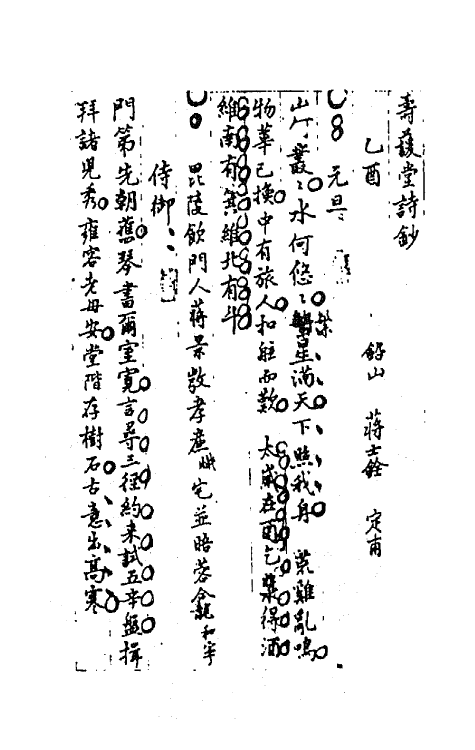 壽萱堂詩鈔
乙酉
鉛山 蔣士銓 定甫
元旦
山何叢叢水何悠悠繁星滿天下照我舟荒雞亂鳴
物華已換中有旅人扣舷而歎 太歲在酉乞漿得酒
維南有箕維北有斗
毘陵飲門人蔣景敬孝廉 宅並晤蓉龕和寧
侍御
門第先朝舊琴書爾室寬言尋三徑約來試五辛盤揖
拜諸兒秀雍容老母安堂階存樹石古意出高寒